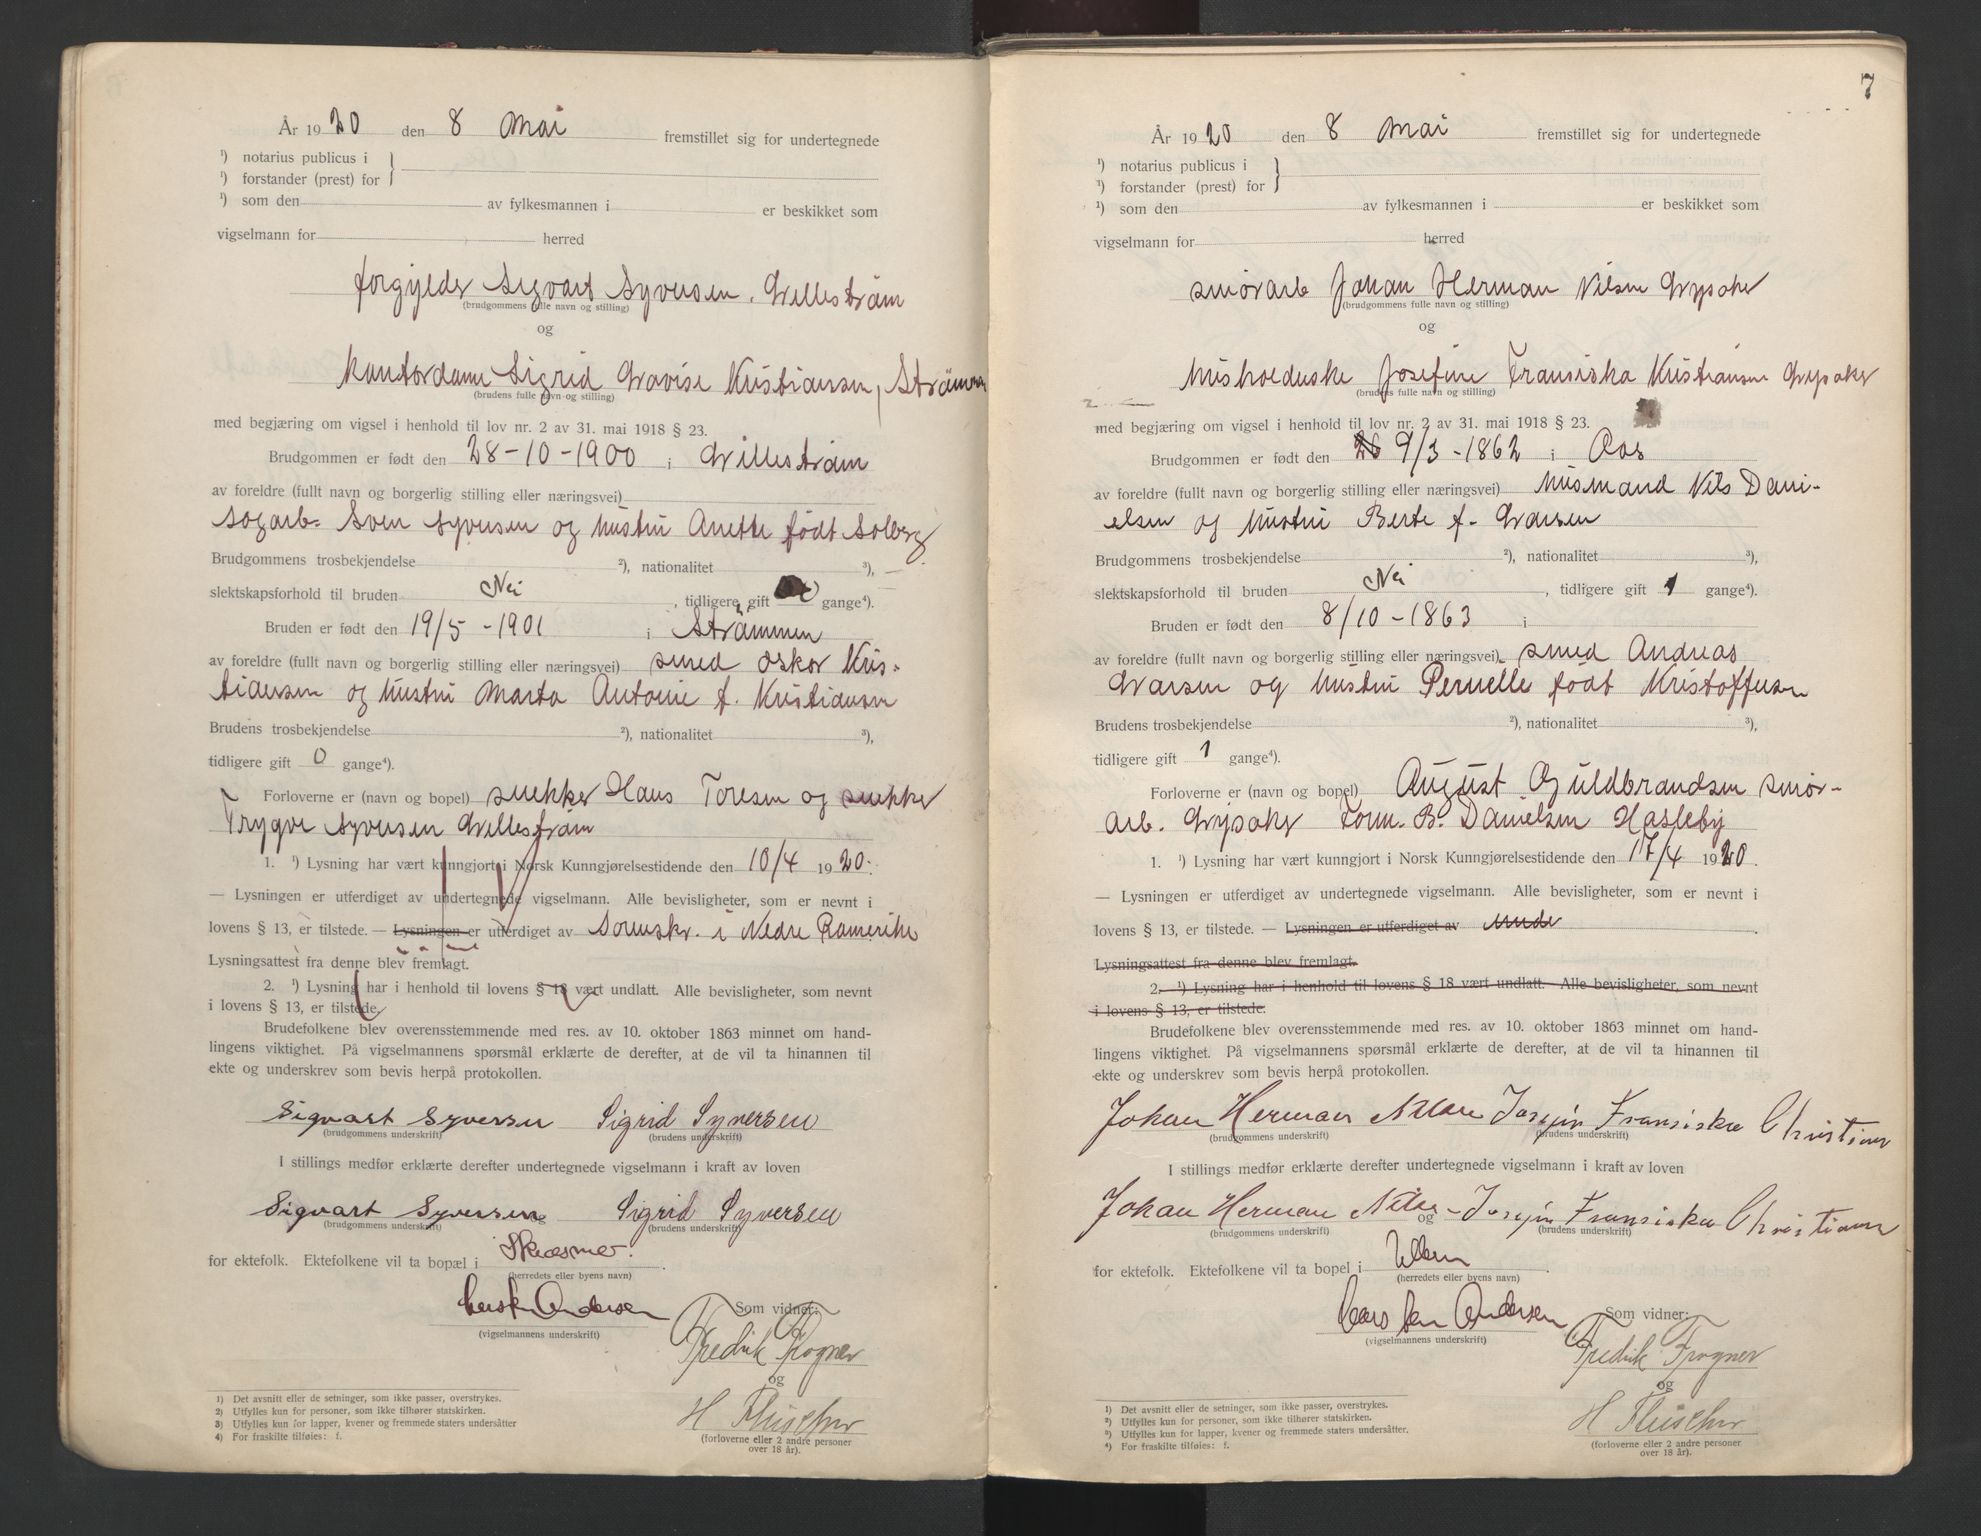 År 1920 den 8 Mai fremstillet sig for undertegnede
¹) notarius publicus i
¹) forstander (prest) for
¹) som den av fylkesmannen i er beskikket som
vigselmann for herred
forgylder Sigvart Syversen. Lillestrøm
(brudgommens fulle navn og stilling)
og
kontordame Sigrid Lovise Kristiansen, Strømmen
(brudens fulle navn og stilling)
med begjæring om vigsel i henhold til lov nr. 2 av 31. mai 1918 § 23.
Brudgommen er født den 28-10-1900 i Lillestrøm
av foreldre (fullt navn og borgerlig stilling eller næringsvei)
Sagarb. Sven Syversen og hustru Anette født Solberg
Brudgommens trosbekjendelse ²), nationalitet ³),
slektskapsforhold til bruden Nei, tidligere gift 0 gange⁴).
Bruden er født den 19/5-1901 i Strømmen
av foreldre (fullt navn og borgerlig stilling eller næringsvei) smed Oskar Kris-
tiansen og hustru Marta Antonie f. Kristiansen
Brudens trosbekjendelse ²), nationalitet ³),
tidligere gift 0 gange⁴).
Forloverne er (navn og bopel) snekker Hans Toresen og snekker
Trygve Syversen Lillestrøm
1. ¹) Lysning har vært kunngjort i Norsk Kunngjørelsestidende den 10/4 1920.
— Lysningen er utferdiget av undertegnede vigselmann. Alle bevisligheter, som er nevnt i
lovens § 13, er tilstede. — Lysningen er utferdiget av Sorenskr. i Nedre Romerike
Lysningsattest fra denne blev fremlagt.
2. ¹) Lysning har i henhold til lovens § 18 vært undlatt. Alle bevisligheter, som nevnt
i lovens § 13, er tilstede.
Brudefolkene blev overensstemmende med res. av 10. oktober 1863 minnet om hand-
lingens viktighet. På vigselmannens spørsmål erklærte de derefter, at de vil ta hinannen til
ekte og underskrev som bevis herpå protokollen.
Sigvart Syversen Sigrid Syversen
(brudgommens underskrift) (brudens underskrift)
I stillings medfør erklærte derefter undertegnede vigselmann i kraft av loven
Sigvart Syversen og Sigrid Syversen
(brudgommens underskrift) (brudens underskrift)
for ektefolk. Ektefolkene vil ta bopæl i Skedsmo.
(herredets eller byens navn)
Carsten Andersen Som vidner:
(vigselmannens underskrift)
Fredrik Frogner
og
H Fleischer
(forloverne eller 2 andre personer
over 18 år).
1) Det avsnitt eller de setninger, som ikke passer, overstrykes.
2) Utfylles kun for personer, som ikke tilhører statskirken.
3) Utfylles kun for lapper, kvener og fremmede staters undersåtter
4) For fraskilte tilføies: f.
7
År 1920 den 8 Mai fremstillet sig for undertegnede
¹) notarius publicus i
¹) forstander (prest) for
¹) som den av fylkesmannen i er beskikket som
vigselmann for herred
smørarb Johan Herman Nilsen Lysaker
(brudgommens fulle navn og stilling)
og
husholderske Josefine Fransiska Kristiansen Lysaker
(brudens fulle navn og stilling)
med begjæring om vigsel i henhold til lov nr. 2 av 31. mai 1918 § 23.
Brudgommen er født den 9/3-1862 i Aas
av foreldre (fullt navn og borgerlig stilling eller næringsvei) husmand Nils Dani-
elsen og hustru Berte f. Larsen
Brudgommens trosbekjendelse ²), nationalitet ³),
slektskapsforhold til bruden Nei, tidligere gift 1 gange⁴).
Bruden er født den 8/10-1863 i
av foreldre (fullt navn og borgerlig stilling eller næringsvei) smed Andreas
Larsen og hustru Pernelle født Kristoffersen
Brudens trosbekjendelse ²), nationalitet ³),
tidligere gift 1 gange⁴).
Forloverne er (navn og bopel) August Guldbrandsen smør-
arb. Lysaker B. Danielsen Hasleby
1. ¹) Lysning har vært kunngjort i Norsk Kunngjørelsestidende den 17/4 1920.
— Lysningen er utferdiget av undertegnede vigselmann. Alle bevisligheter, som er nevnt i
lovens § 13, er tilstede. — Lysningen er utferdiget av
Lysningsattest fra denne blev fremlagt.
2. ¹) Lysning har i henhold til lovens § 18 vært undlatt. Alle bevisligheter, som nevnt
i lovens § 13, er tilstede.
Brudefolkene blev overensstemmende med res. av 10. oktober 1863 minnet om hand-
lingens viktighet. På vigselmannens spørsmål erklærte de derefter, at de vil ta hinannen til
ekte og underskrev som bevis herpå protokollen.
Johan Herman Nilsen Josefin Fransiska Christiansen
(brudgommens underskrift) (brudens underskrift)
I stillings medfør erklærte derefter undertegnede vigselmann i kraft av loven
Johan Herman Nilsen og Josefin Fransiska Christiansen
(brudgommens underskrift) (brudens underskrift)
for ektefolk. Ektefolkene vil ta bopel i Ullern
(herredets eller byens navn)
Carsten Andersen Som vidner:
(vigselmannens underskrift)
Fredrik Frogner
og
H Fleischer
(forloverne eller 2 andre personer
over 18 år).
¹) Det avsnitt eller de setninger, som ikke passer, overstrykes.
²) Utfylles kun for personer, som ikke tilhører statskirken.
³) Utfylles kun for lapper, kvener og fremmede staters undersåtter.
⁴) For fraskilte tilføies: f.